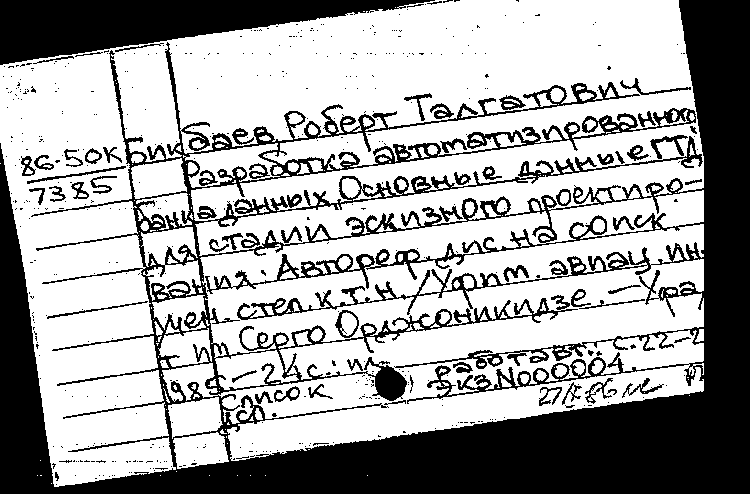 86-50К
7385
Бикбаев, Роберт Талгатович
Разработка автоматизированного
банка данных "Основные данные ГТД
для стадии эскизного проектиро-
вания. Автореф. дис. на соиск.
учен. степ. к.т.н. / Уфим. авиац. ин-
т им Серго Орджоникидзе. - Уфа,
1985. - 24 с.: ил.
Список работ авт.: с. 22-2
ДСП. Экз. N000004.